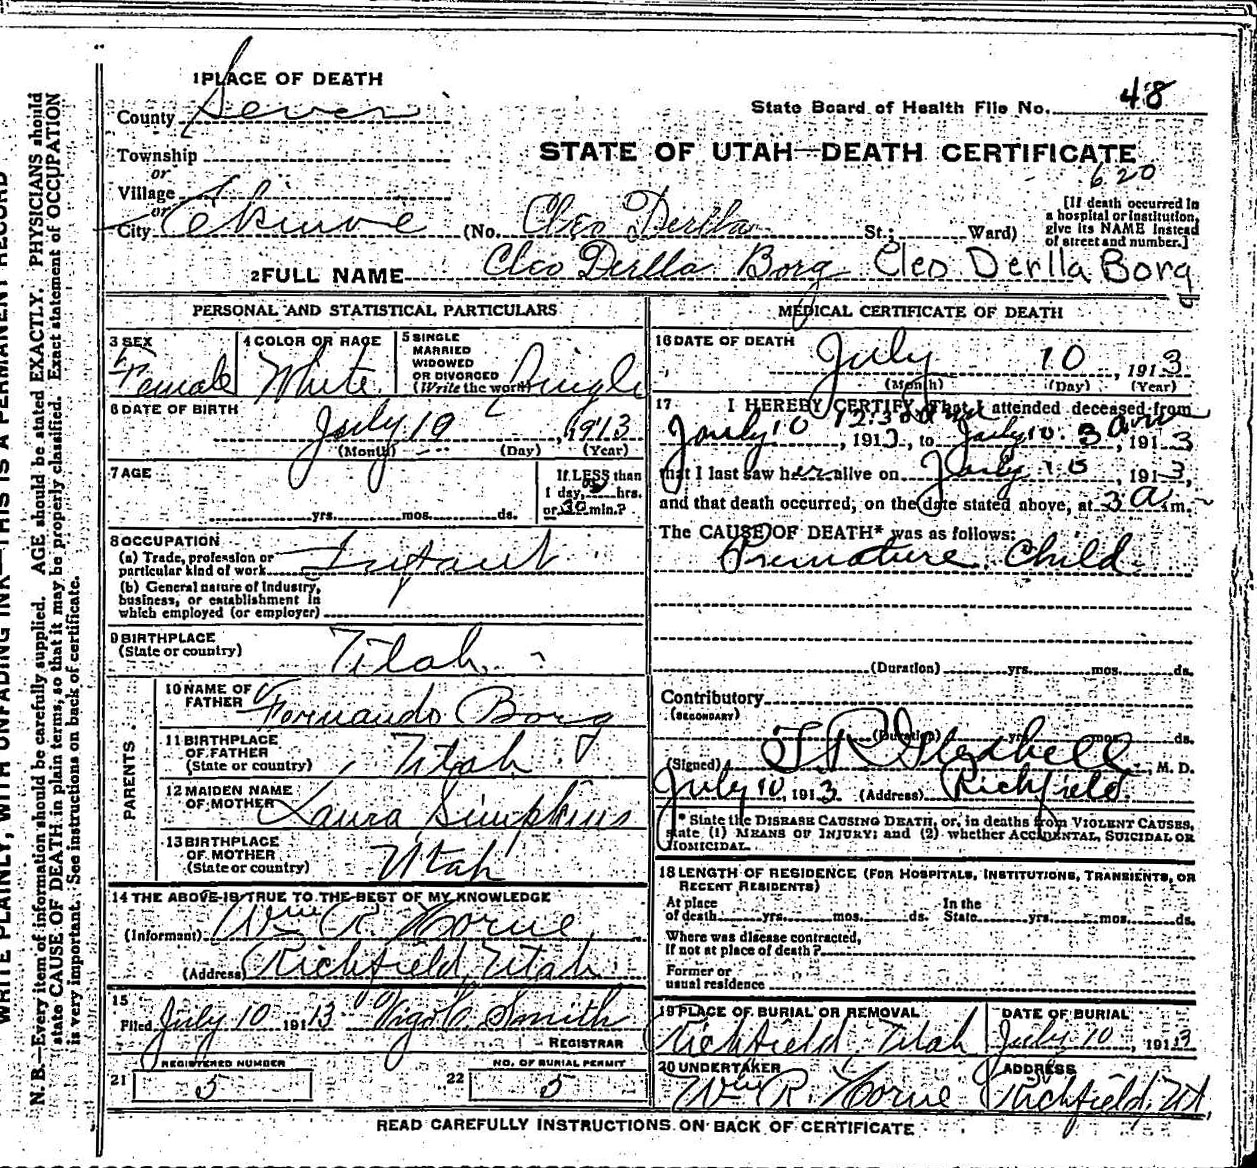 WRITE PLAINLY, WITH UNFADING INK—THIS IS A PERMANENT RECORD
N. B.—Every item of information should be carefully supplied. AGE should be stated EXACTLY. PHYSICIANS should
state CAUSE OF DEATH in plain terms, so that it may be properly classified. Exact statement of OCCUPATION
is very important. See instructions on back of certificate.
1 PLACE OF DEATH
County Sevier
Township
or
Village
or
City
State Board of Health File No. 48
STATE OF UTAH—DEATH CERTIFICATE
620
(No. Cleo Derlla St.; Ward)
[If death occurred in
a hospital or institution,
give its NAME instead
of street and number.]
2 FULL NAME Cleo Derlla Borg Cleo Derlla Borg
PERSONAL AND STATISTICAL PARTICULARS
3 SEX
Female
4 COLOR OR RACE
White
5 SINGLE
MARRIED
WIDOWED
OR DIVORCED
(Write the word) Single
6 DATE OF BIRTH
July 10, 1913
(Month) (Day) (Year)
7 AGE
yrs. mos. ds.
If LESS than
1 day, hrs.
or 30 min.?
8 OCCUPATION
(a) Trade, profession or
particular kind of work Infant
(b) General nature of industry,
business, or establishment in
which employed (or employer)
9 BIRTHPLACE
(State or country) Utah
PARENTS
10 NAME OF
FATHER Fernando Borg
11 BIRTHPLACE
OF FATHER
(State or country) Utah
12 MAIDEN NAME
OF MOTHER Laura Simpkins
13 BIRTHPLACE
OF MOTHER
(State or country) Utah
14 THE ABOVE IS TRUE TO THE BEST OF MY KNOWLEDGE
(Informant) Wm R. Horne
(Address) Richfield, Utah
15
Filed July 10 1913 Smith
REGISTRAR
REGISTERED NUMBER
21 5
NO. OF BURIAL PERMIT
22 5
MEDICAL CERTIFICATE OF DEATH
16 DATE OF DEATH
July 10, 1913
(Month) (Day) (Year)
17 I HEREBY CERTIFY, That I attended deceased from
July 10 12:30 am, 1913, to July 10 3 am, 1913
that I last saw her alive on July 10 1913,
and that death occurred, on the date stated above, at 3 a m.
The CAUSE OF DEATH* was as follows:
Premature Child
(Duration) yrs. mos. ds.
Contributory
(SECONDARY)
(Duration) yrs. mos. ds.
(Signed) T R Gledhill, M. D.
July 10, 1913 (Address) Richfield.
* State the DISEASE CAUSING DEATH, or, in deaths from VIOLENT CAUSES,
state (1) MEANS OF INJURY; and (2) whether ACCIDENTAL, SUICIDAL OR
HOMICIDAL.
18 LENGTH OF RESIDENCE (FOR HOSPITALS, INSTITUTIONS, TRANSIENTS, OR
RECENT RESIDENTS)
At place
of death yrs. mos. ds.
In the
State yrs. mos. ds.
Where was disease contracted,
if not at place of death?
Former or
usual residence
19 PLACE OF BURIAL OR REMOVAL
Richfield Utah
DATE OF BURIAL
July 10, 1913
20 UNDERTAKER
Wm R. Horne
ADDRESS
Richfield, Ut,
READ CAREFULLY INSTRUCTIONS ON BACK OF CERTIFICATE